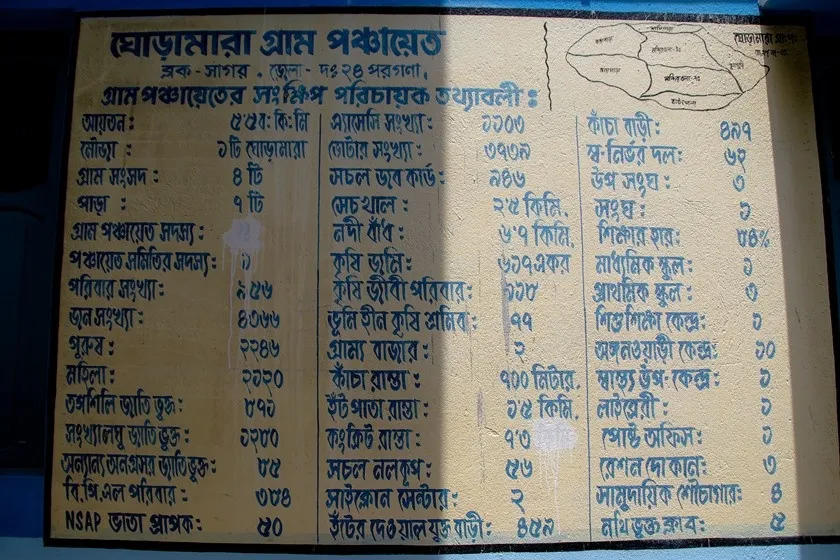 ঘোড়ামারা গ্রাম পঞ্চায়েত
ব্লক - সাগর . জেলা - দঃ ২৪ পরগণা,
গ্রাম পঞ্চায়েতের সংক্ষিপ্ত পরিচায়ক তথ্যাবলী :
আয়তন : ৫'৫ ব: কি: মি
মৌজা : ১টি ঘোড়ামারা
গ্রাম সংসদ : ৪ টি
পাড়া : ৭ টি
গ্রাম পঞ্চায়েত সদস্য :
পঞ্চায়েত সমিতির সদস্য : ১
পরিবার সংখ্যা : ৯৫৬
জন সংখ্যা : ৪৩৬৬
পুরুষ : ২২৪৬
মহিলা : ২১২০
তপশিলি জাতি ভুক্ত : ৮৭১
সংখ্যালঘু জাতি ভুক্ত : ১২৮০
অন্যান্য অনগ্রসর জাতি ভুক্ত : ৮৫
বি.পি.এল পরিবার : ৩৮৪
NSAP ভাতা প্রাপক : ৫০
এসেসি সংখ্যা : ১১০৩
ভোটার সংখ্যা : ৩৭৩৯
সচল জব কার্ড : ৯৪৬
সেচ খাল : ২'৫ কিমি.
নদী বাঁধ : ৬'৭ কিমি.
কৃষি জমি : ৬১৭ একর
কৃষি জীবী পরিবার : ১১৮
ভূমি হীন কৃষি শ্রমিক : ৭৭
গ্রাম্য বাজার : ২
কাঁচা রাস্তা : ৭০০ মিটার.
ইঁট পাতা রাস্তা : ১'৫ কিমি.
কংক্রিট রাস্তা : ৭'৩
সচল নলকূপ : ৫৬
সাইক্লোন সেন্টার : ২
ইঁটের দেওয়াল যুক্ত বাড়ী : ৪৫৯
কাঁচা বাড়ী : ৪৯৭
স্ব-নির্ভর দল : ৬২
উপ সংঘ : ৩
সংঘ : ১
শিক্ষার হার : ৮৪%
মাধ্যমিক স্কুল : ১
প্রাথমিক স্কুল : ৩
শিশু শিক্ষা কেন্দ্র : ১
অঙ্গনওয়াড়ী কেন্দ্র : ১০
স্বাস্থ্য উপ-কেন্দ্র : ১
লাইব্রেরী : ১
পোষ্ট অফিস : ১
রেশন দোকান : ৩
সামুদায়িক শৌচাগার : ৪
নথি ভুক্ত ক্লাব : ৫